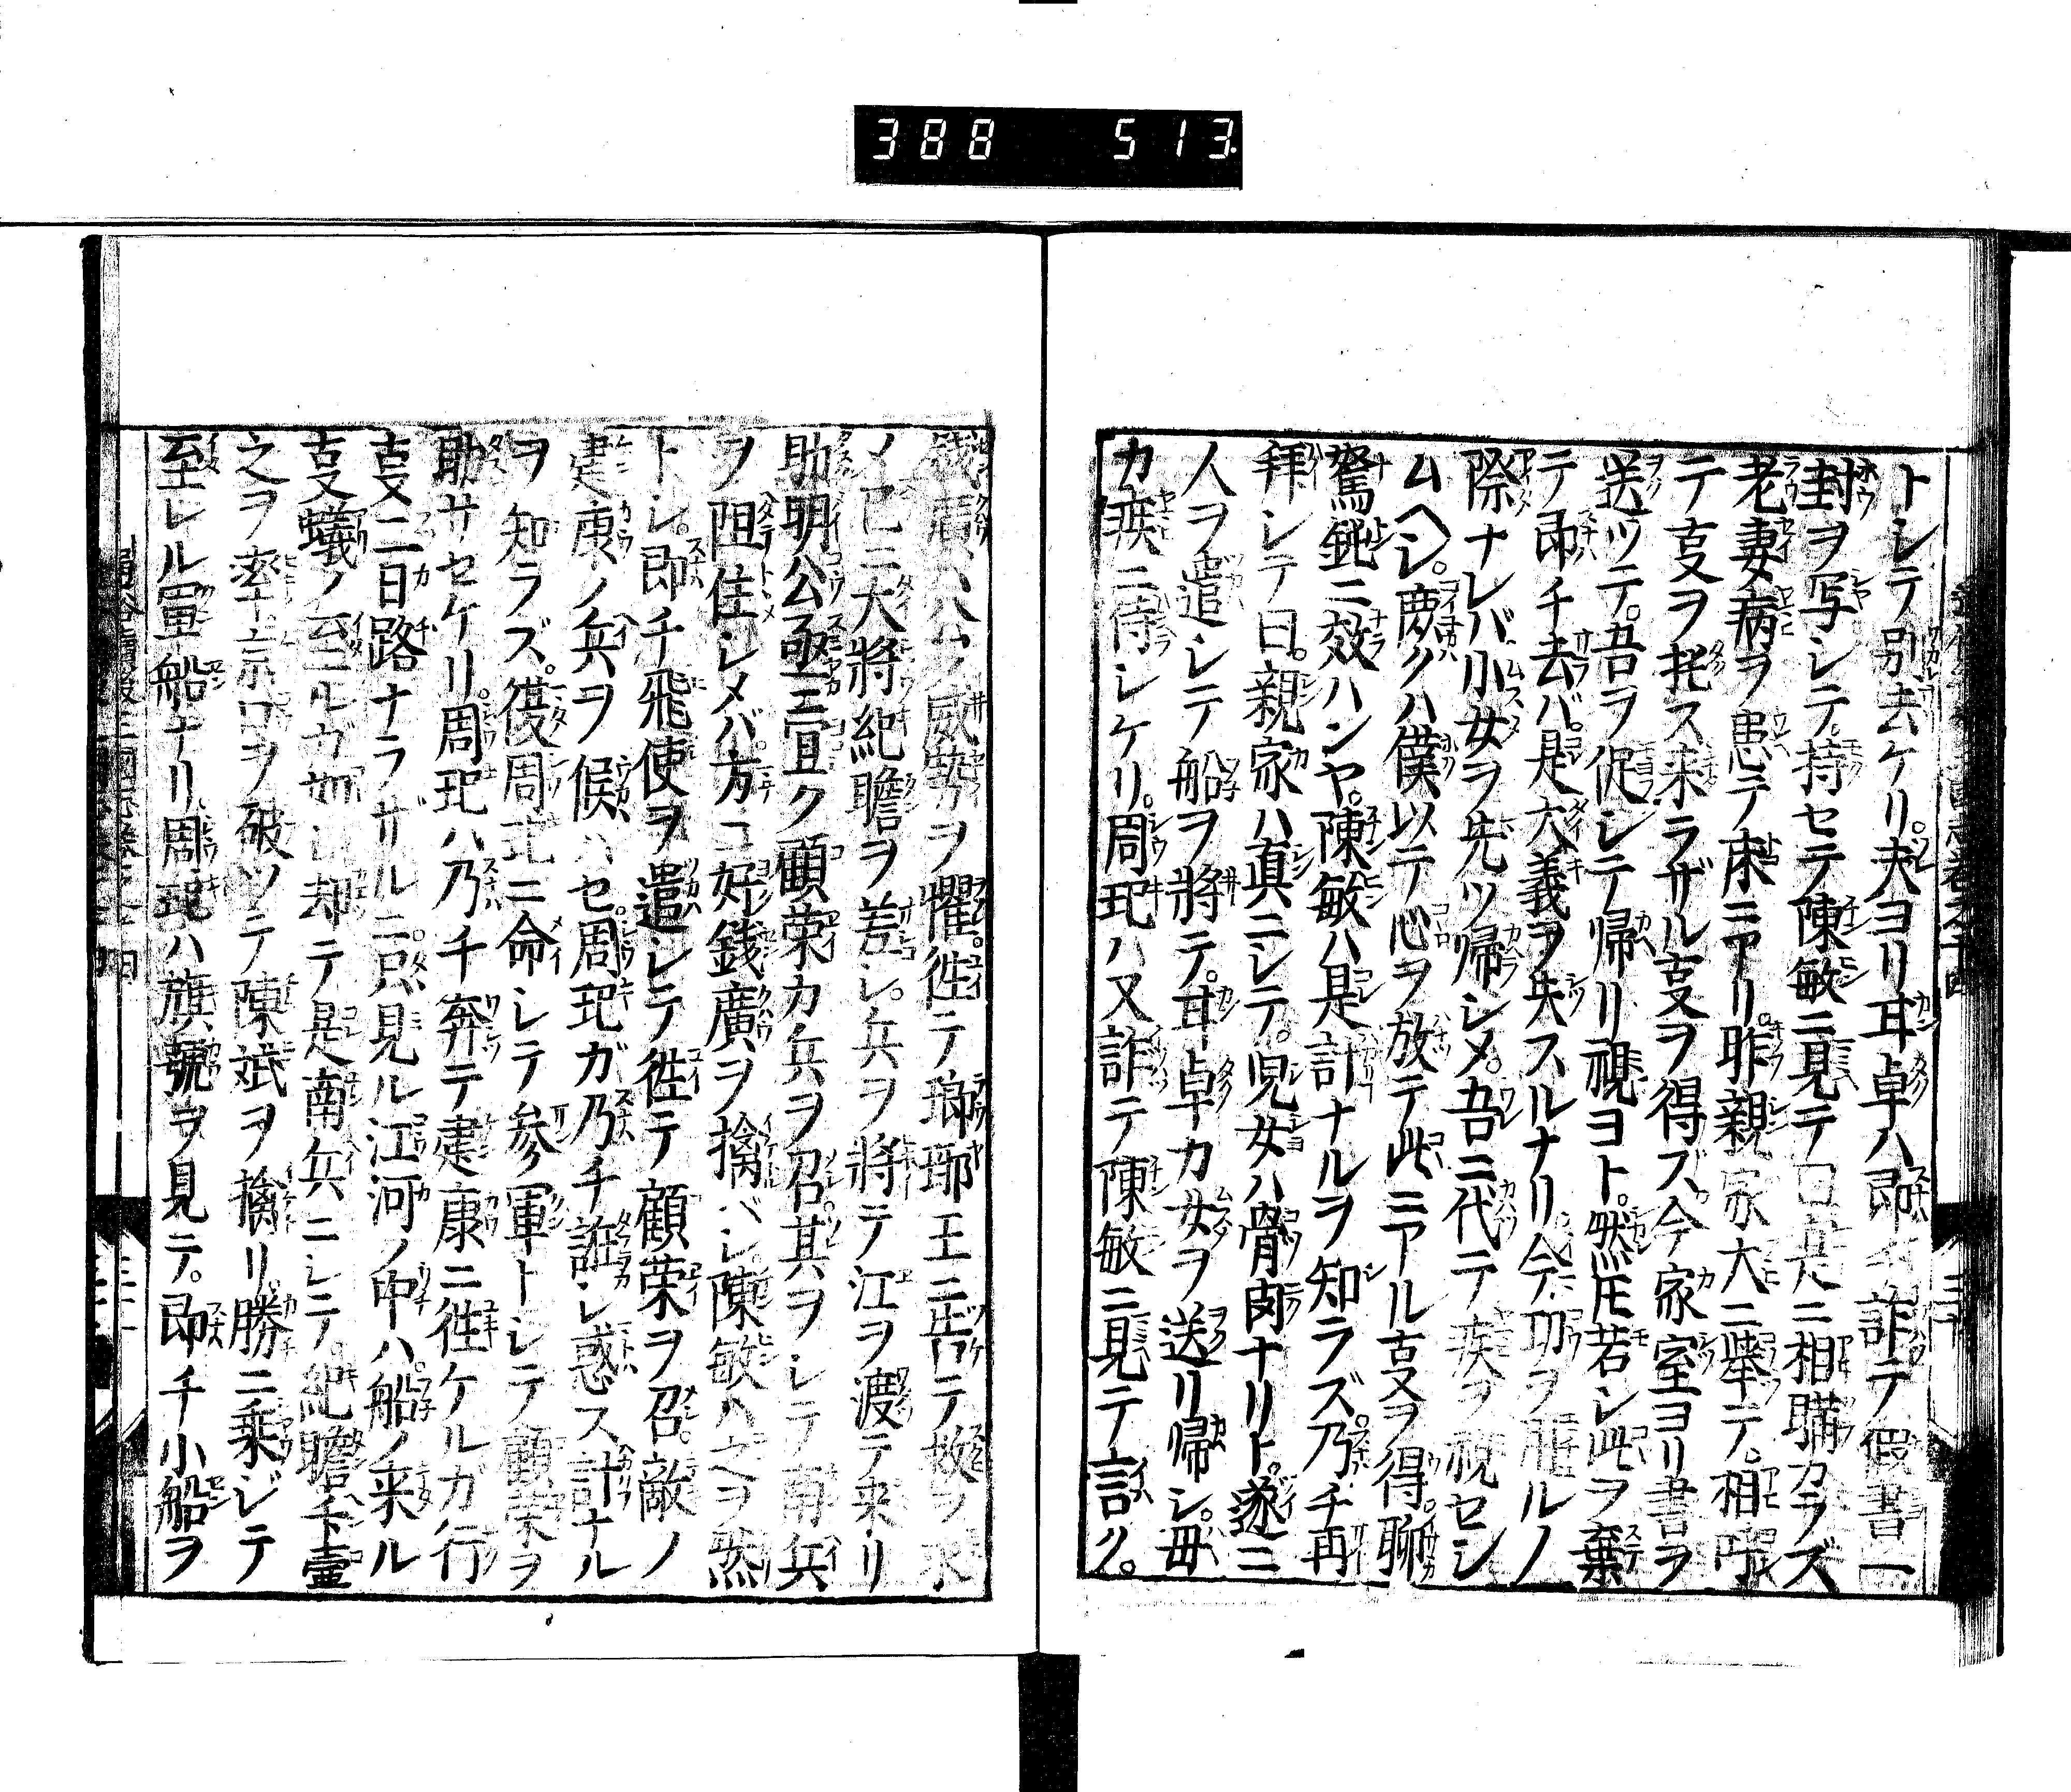 388 513.
トシテ別去ケリ。夫ヨリ耳卓ハ即チ詐テ假書一
封ヲ写シテ。持セテ陳敏ニ見テ曰 ニ相購カラズ
老妻病ヲ患テ床ニアリ。昨親家大ニ挙テ。相
テ支ヲ托ス来ラザル支ヲ得ズ。今家室ヨリ書ヲ
送ツテ。吾ヲ促シテ帰リ視ヨト。然モ若シ此ヲ棄
テ即チ去バ。是大義ヲ失スルナリ今功ヲ ルノ
際ナレバ小女ヲ先ツ帰シメ。吾ニ代テ疾ヲ視セシ
ムヘシ。庶クハ僕以テ心ヲ放テ此ニアル支ヲ得。聊
駑鈍ニ效ハンヤ。陳敏ハ是計ナルヲ知ラズ。乃チ再
拜シテ曰。親家ハ真ニシテ。児女ハ骨肉ナリト。遂ニ
人ヲ遣シテ船ヲ將テ。耳卓カ女ヲ送リ帰シ。毋
カ疾ニ侍シケリ。周玘ハ又詐テ陳敏ニ見テ言ク。
錢廣ハ公ノ威勢ヲ懼。徃テ瑯琊王ニ告テ救ヲ求
ノ已ニ大將紀瞻ヲ差シ。兵ヲ將テ江ヲ渡テ来リ
助明公亟ニ宜ク顧荣カ兵ヲ召。其ヲシテ南兵
ヲ阻住シメバ方ニ好錢廣ヲ擒ベシ陳敏ハ之ヲ然
トシ。即チ飛使ヲ遣シテ徃テ顧荣ヲ召。敵ノ
建康ノ兵ヲ候ハセ周玘ガ乃チ誑シ惑ス計ナル
ヲ知ラズ。復周玘ニ命シテ参軍トシテ顧荣ヲ
助サセケリ。周玘ハ乃チ奔テ建康ニ徃ケルガ行
支二日路ナラザルニ。只見ル江河ノ中ハ。船ノ来ル
支蟻ノ至ルガ如シ却テ是南兵ニシテ。紀瞻卞壼
之ヲ率。京口ヲ破ツテ陳斌ヲ擒リ。勝ニ乗ジテ
至レル軍船ナリ周玘ハ旗號ヲ見テ。即チ小船ヲ